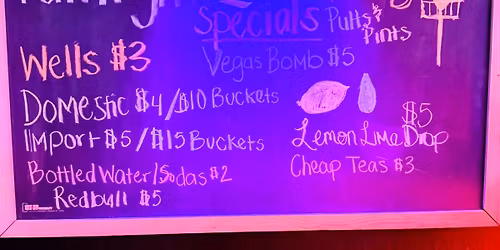 Specials
Putts &
Pints
Wells $3
Vegas Bomb $5
Domestic $4/$10 Buckets
Import $5/$15 Buckets
$5
Lemon Lime Drop
Bottled Water/Sodas $2
Cheap Teas $3
Redbull $5